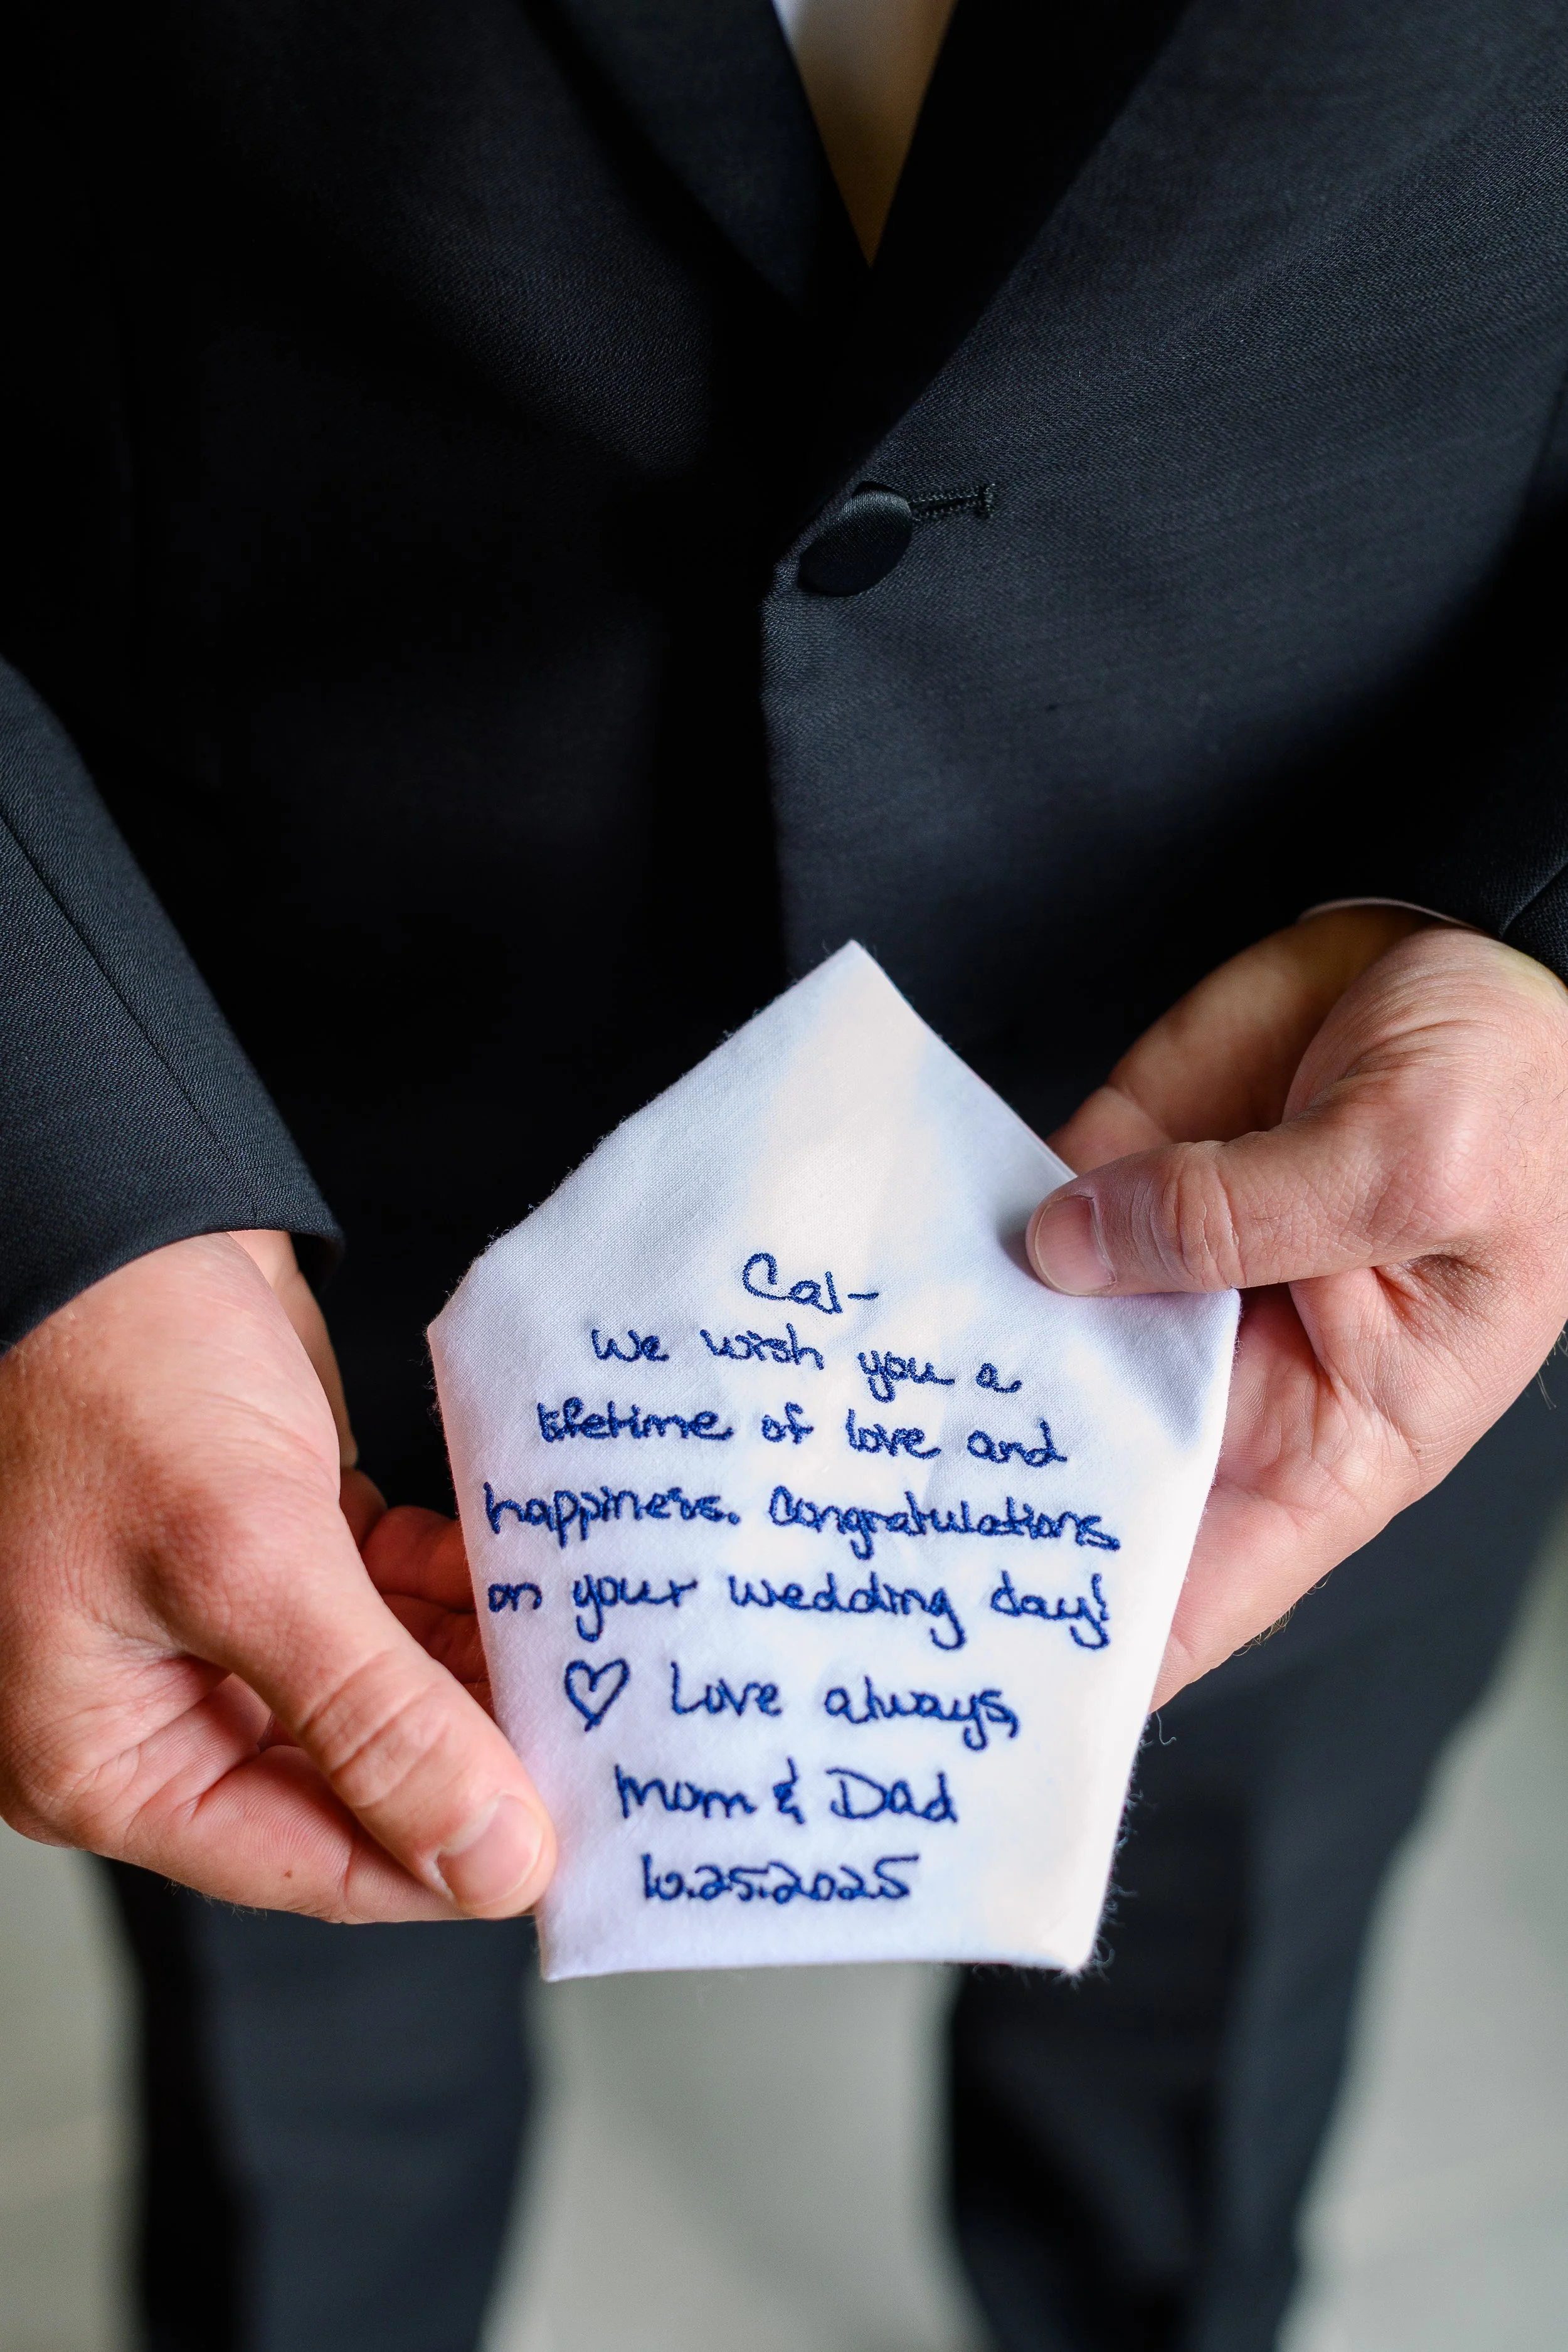 Cal-
We wish you a
lifetime of love and
happiness. Congratulations
on your wedding day!
♡ Love always,
Mom & Dad
10.25.2025